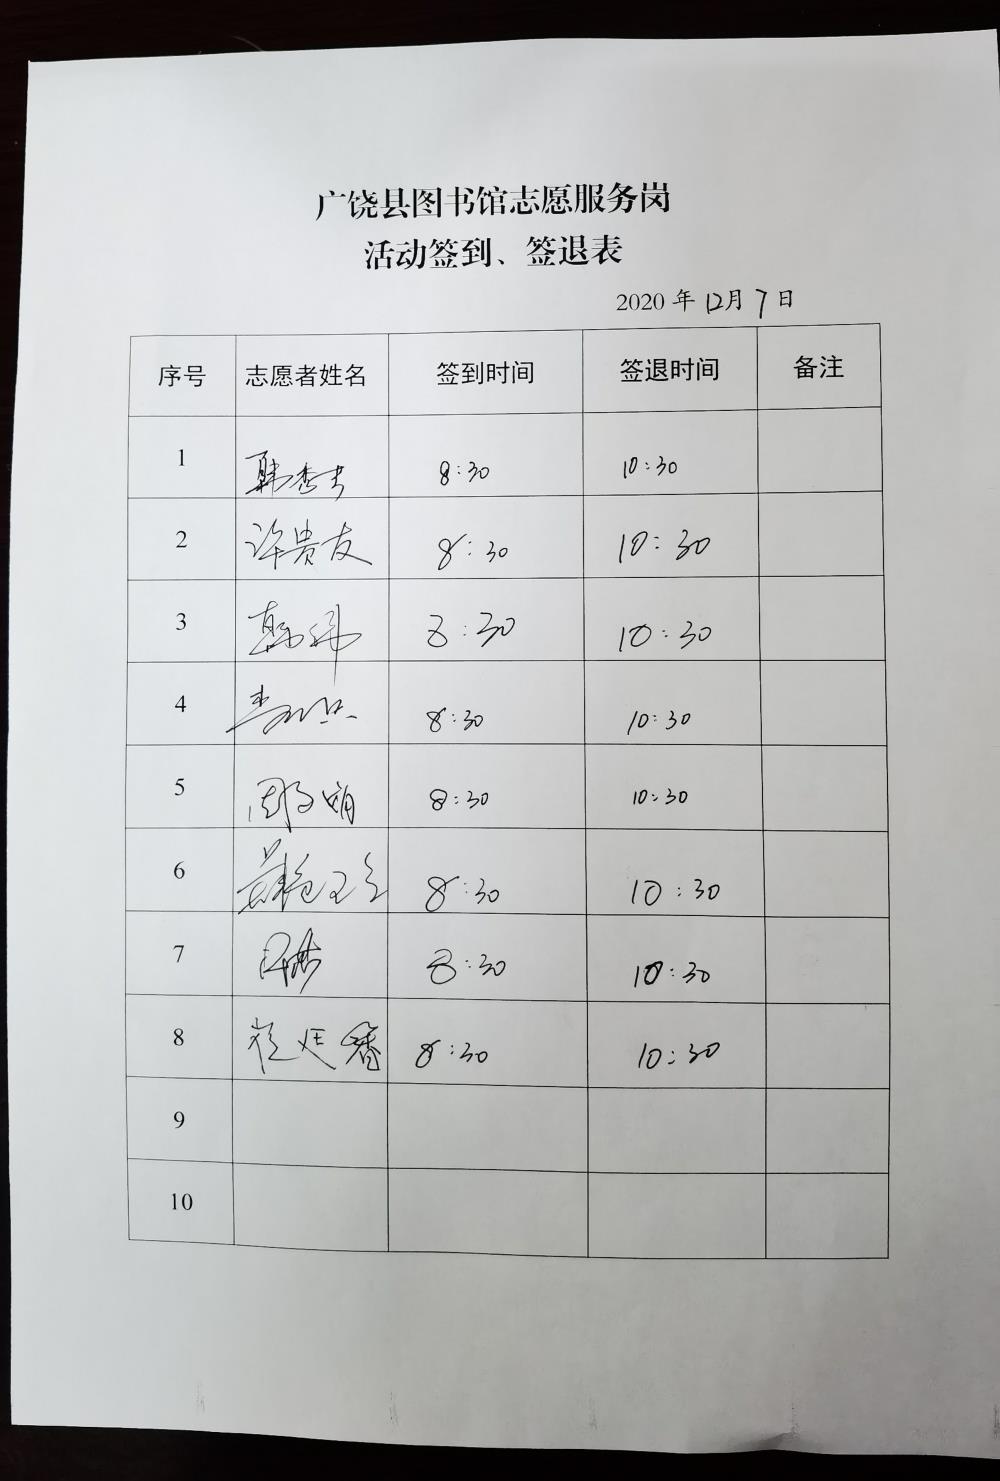 广饶县图书馆志愿服务岗
活动签到、签退表
2020 年 12月 7 日
序号 志愿者姓名 签到时间 签退时间 备注
1 8:30 10:30
2 许贵友 8:30 10:30
3 8:30 10:30
4 8:30 10:30
5 8:30 10:30
6 8:30 10:30
7 8:30 10:30
8 崔廷香 8:30 10:30
9
10